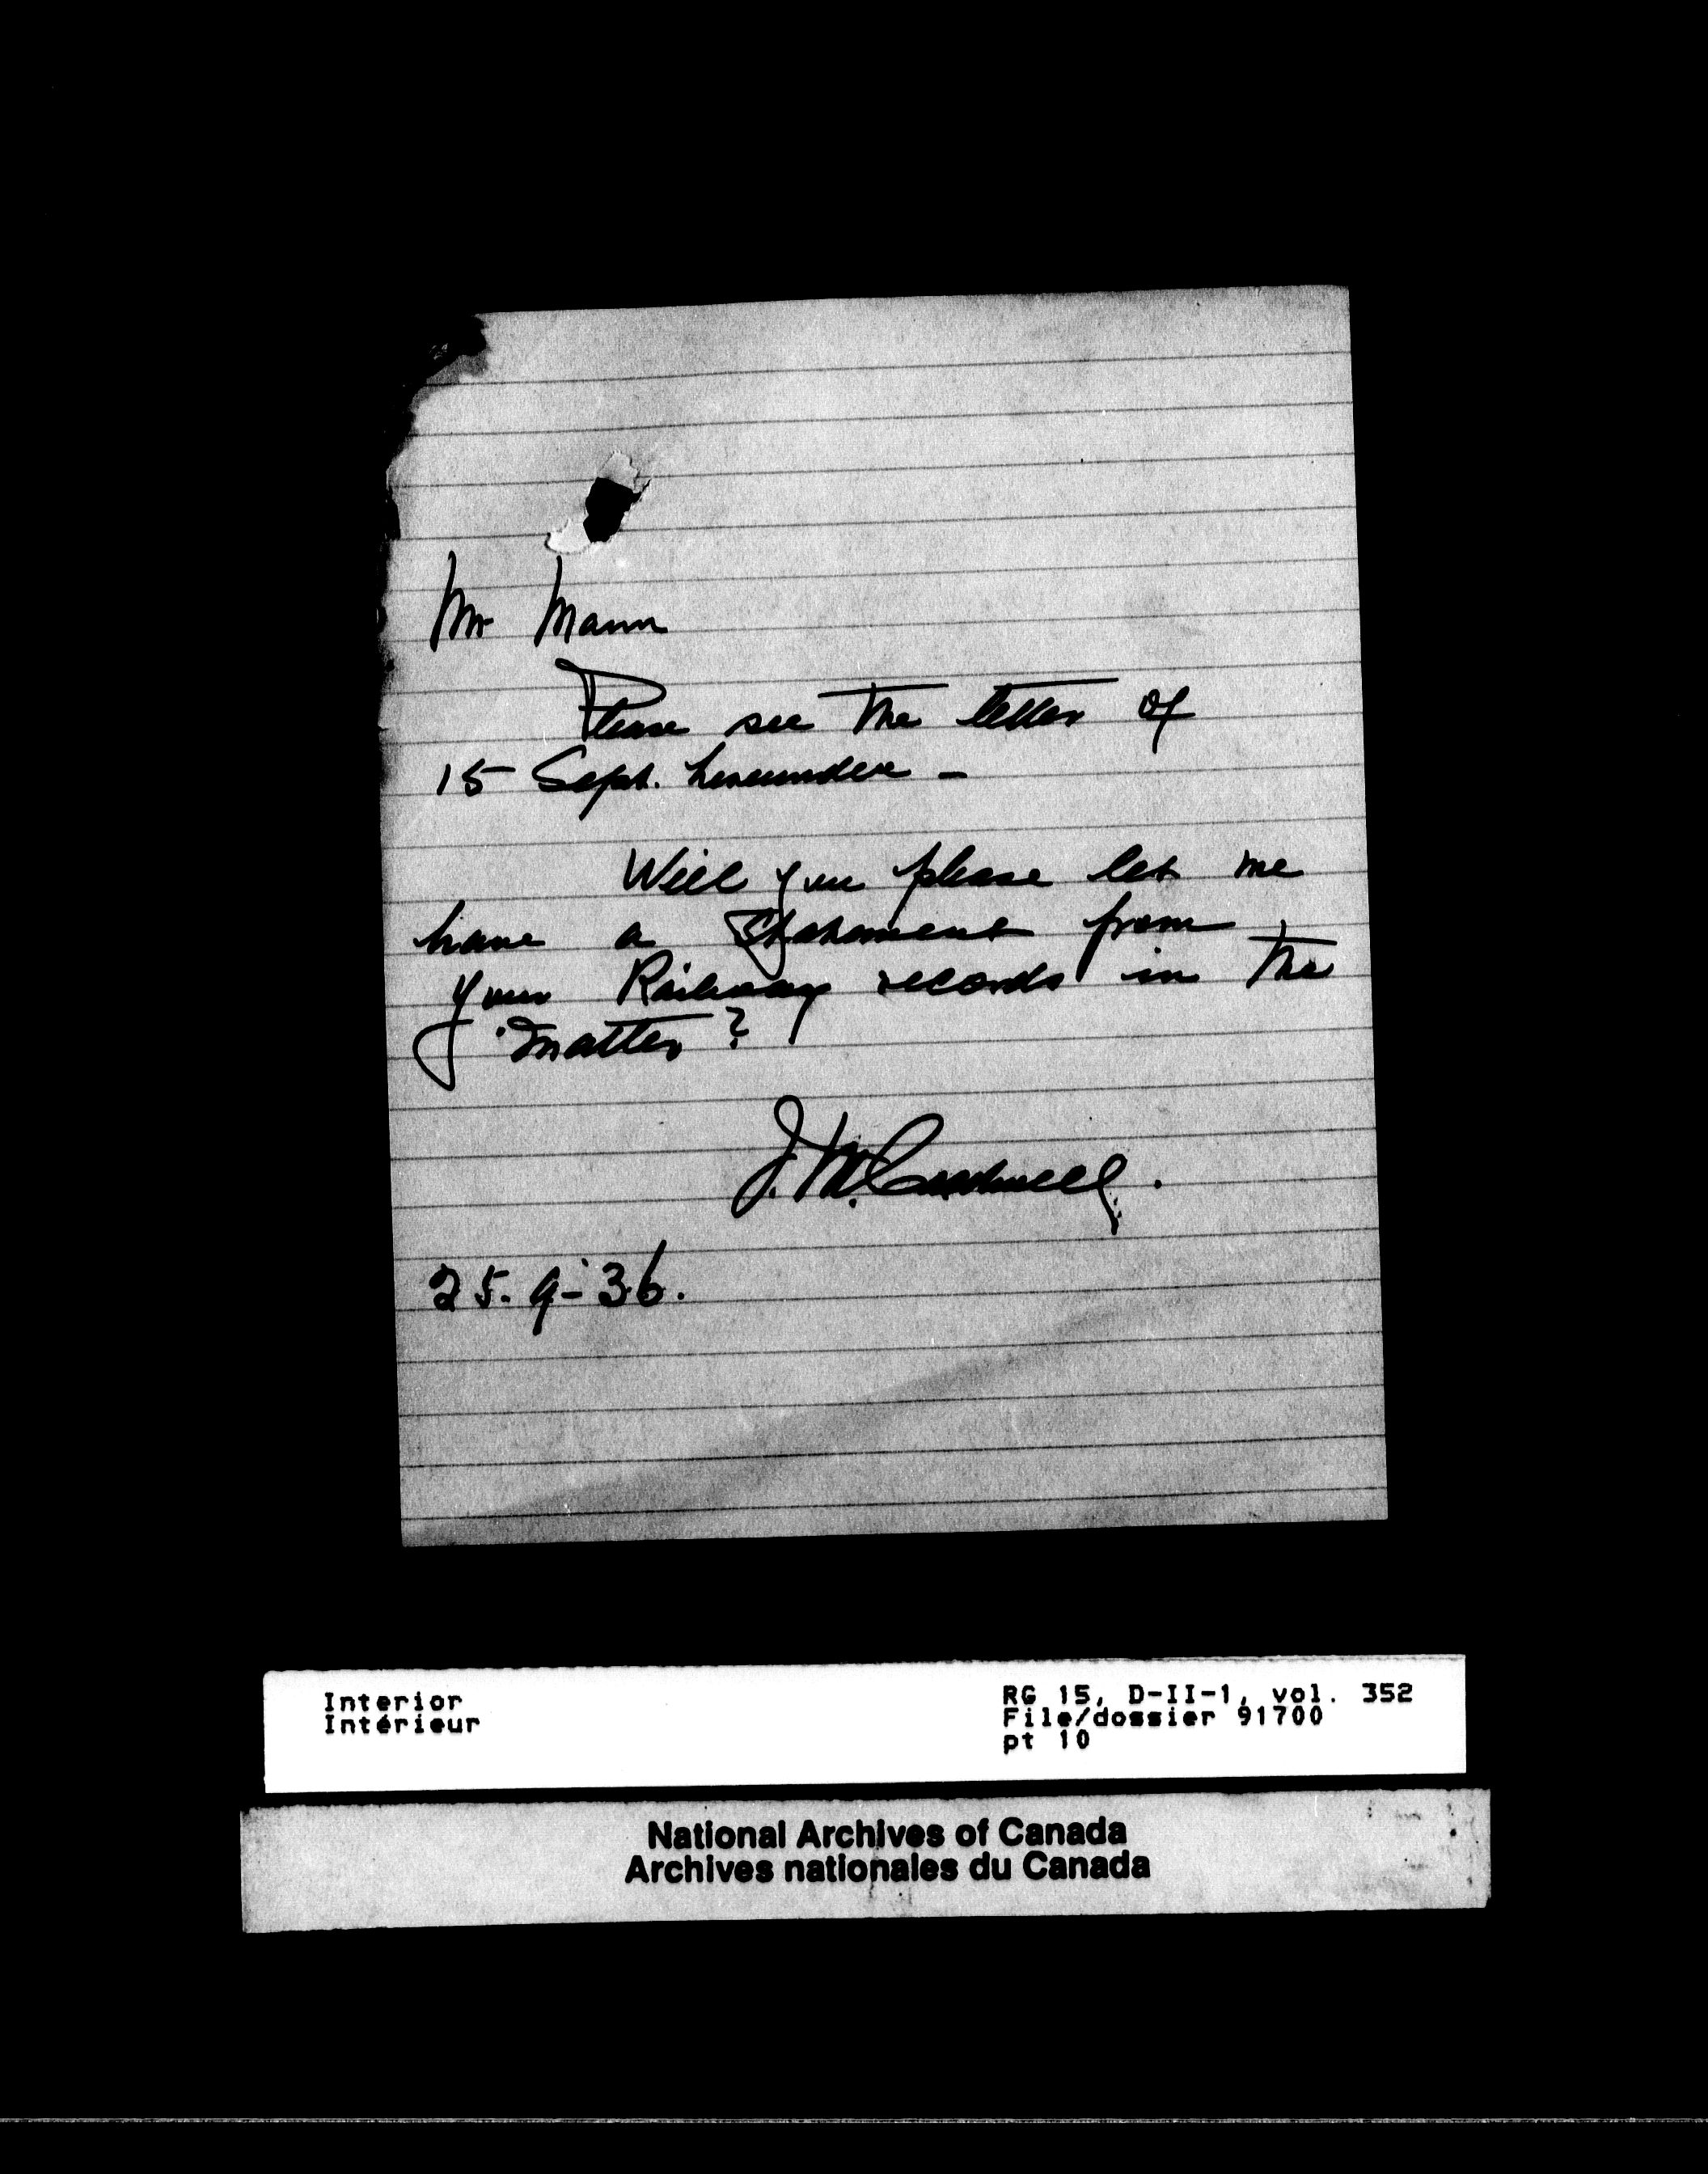 Mr Mann
Please see the letter of
15 Sept. hereunder -
Will you please let me
have a Statement from
your Railway records in the
matter?
J. M.
25.9-36.
Interior
Intérieur
RG 15, D-II-1, vol. 352
File/dossier 91700
pt 10
National Archives of Canada
Archives nationales du Canada